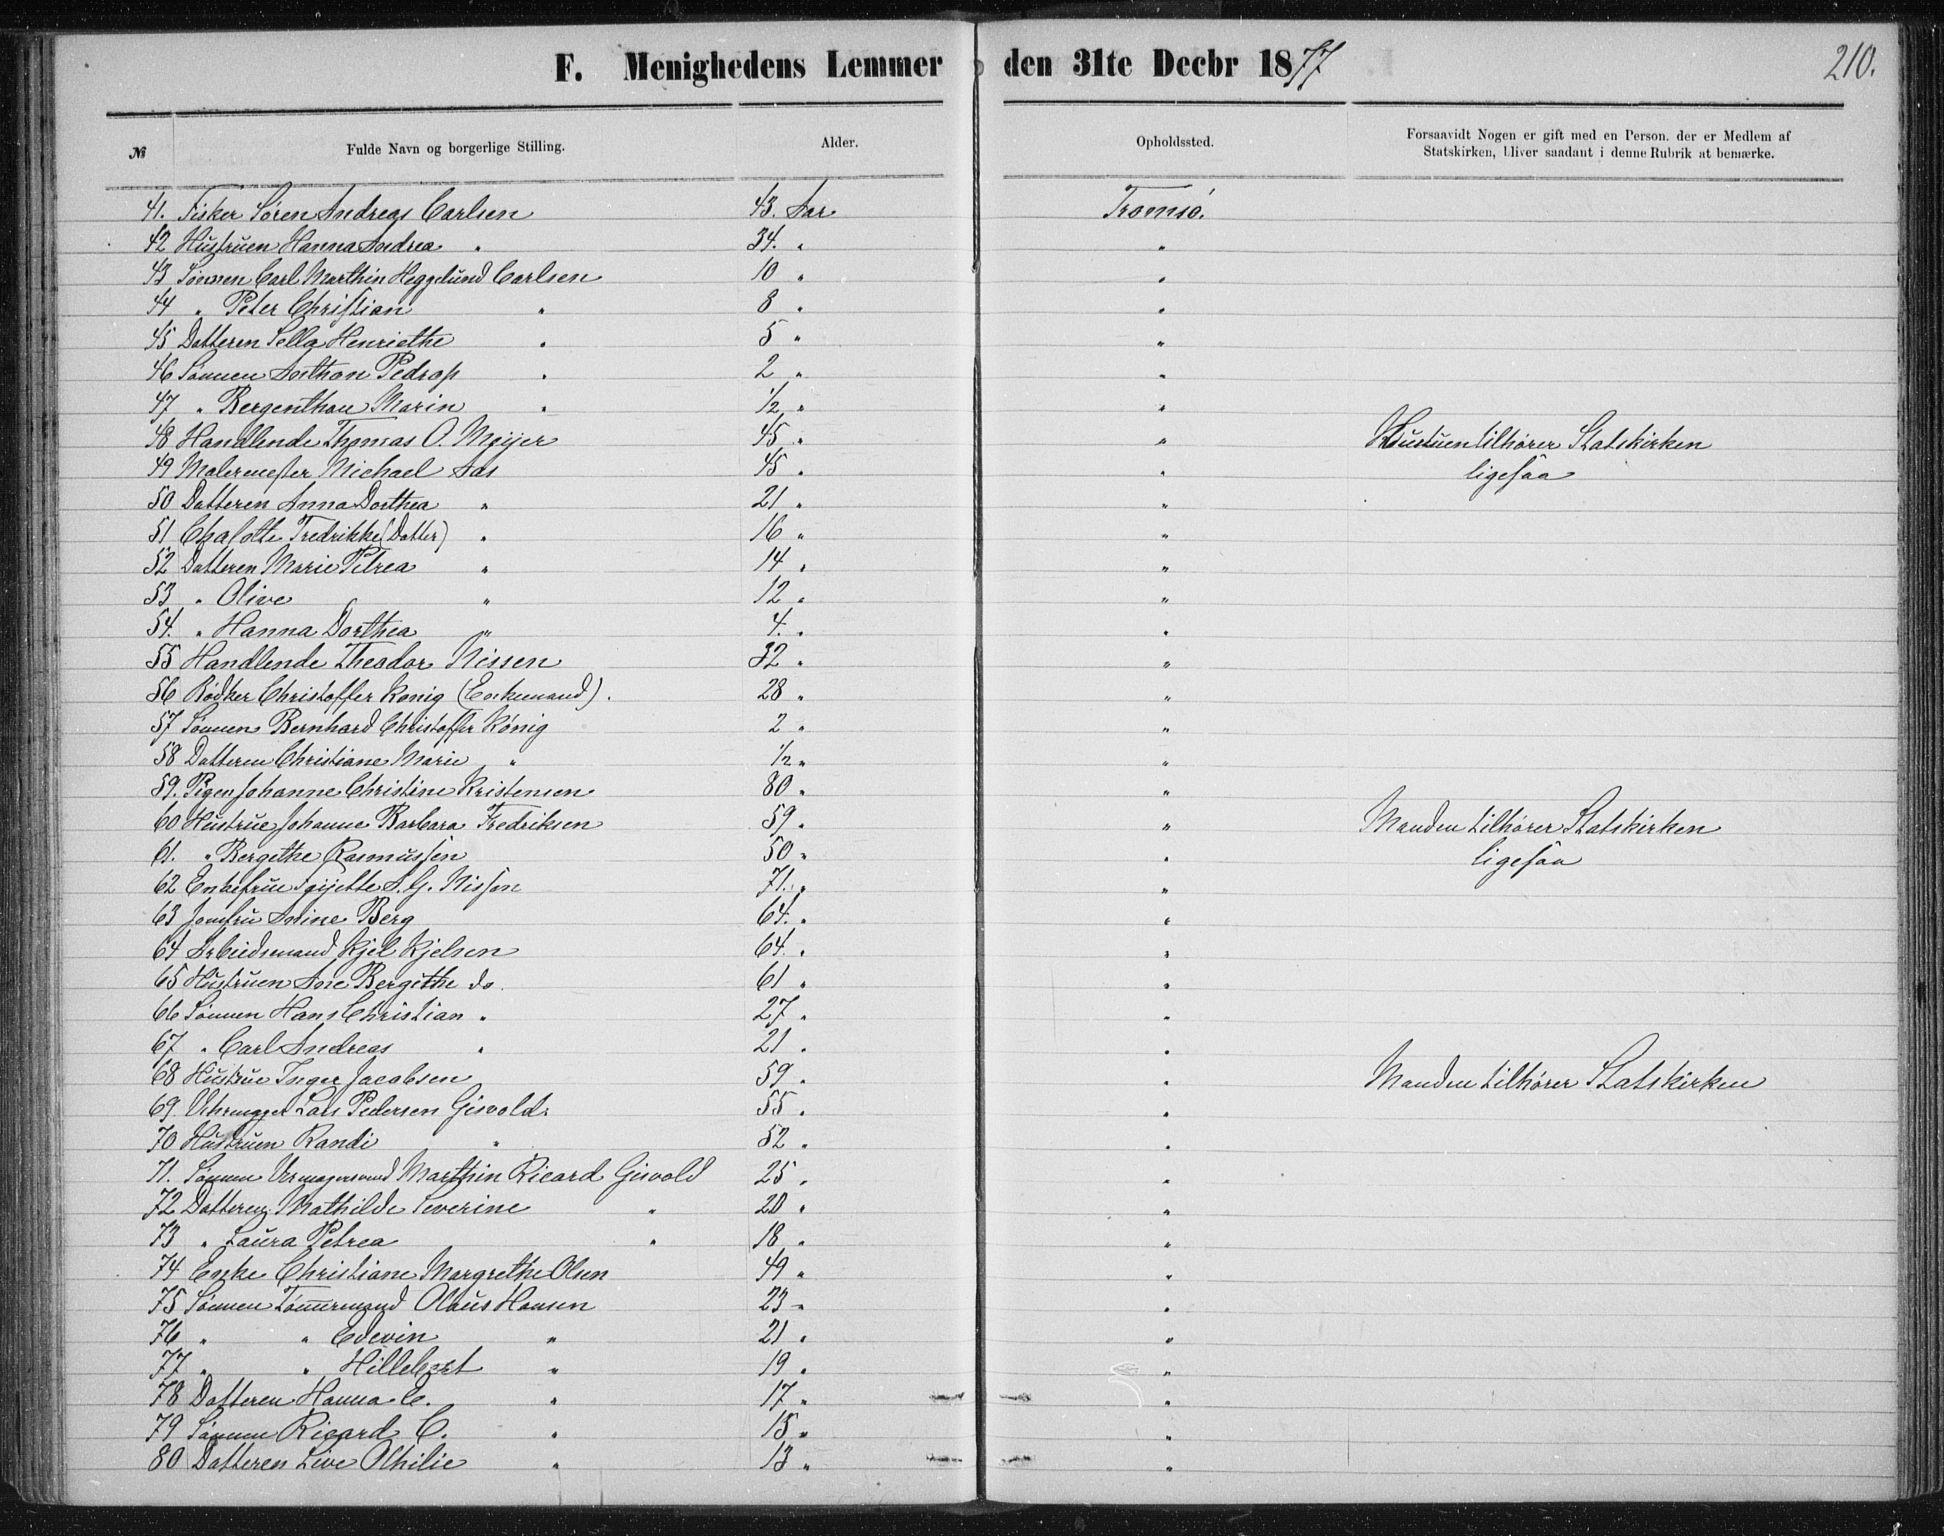 F. Menighedens Lemmer den 31te Decbr 1877
210.
№ Fulde Navn og borgerlige Stilling. Alder. Opholdssted. Forsaavidt Nogen er gift med en Person, der er Medlem af
Statskirken, bliver saadant i denne Rubrik at bemærke.
41. Fisker Søren Andreas Carlsen 43. Aar Tromsø.
42 Hustruen Hanna Andrea " 34. " "
43 Sønnen Carl Marthin Heggelund Carlsen 10 " "
44 " Peter Christian " 8 " "
45 Datteren Sella Henriethe " 5 " "
46 Sønnen Anthon Pedrop " 2 " "
47 " Bergenthau Marin " 1/2 " "
48 Handlende Thomas O. Meyer 45 " " Hustruen tilhører Statskirken
49 Malermester Michael Aas 45 " " ligesaa
50 Datteren Anna Dorthea " 21 " "
51 Chalotte Fredrikke (Datter) " 16 " "
52 Datteren Marie Petrea " 14 " "
53 " Olive " 12 " "
54. " Hanna Dorthea " 4. " "
55 Handlende Theodor Nissen 32 " "
56 Bødker Christoffer Konig (Enkemand). 28 " "
57 Sønnen Bernhard Christoffer König 2 " "
58 Datteren Christiane Marie " 1/2 " "
59. Pigen Johanne Christine Kristensen 80 " "
60 Hustrue Johanne Barbara Fredriksen 59 " " Manden tilhører Statskirken
61. " Bergethe Rasmussen 50 " " ligesaa
62 Enkefrue A. G. Nissen 71. " "
63 Jomfru Anine Berg 64. " "
64 Arbeidsmand Kjel Kjelsen 64. " "
65 Hustruen Ane Bergithe do. 61 " "
66 Sønnen Hans Christian " 27 " "
67 " Carl Andreas " 21 " "
68 Hustrue Inger Jacobsen 59 " " Manden tilhører Statskirken
69. Lars Pedersen Gisvold 55 " "
70 Hustruen Randi " 52 " "
71. Sønnen Marthin Ricard Gisvold 25 " "
72 Datteren Mathilde Severine " 20 " "
73 " Laura Petrea " 18 " "
74 Enke Christiane Margrethe Olsen 49 " "
75 Sønnen Tømmermand Olaus Hansen 23 " "
76 " " Edevin " 21 " "
77 " " Hillebert " 19 " "
78 Datteren Hanna E. " 17 " "
79 Sønnen Ricard C. " 15 " "
80 Datteren Live Othilie " 13 " "